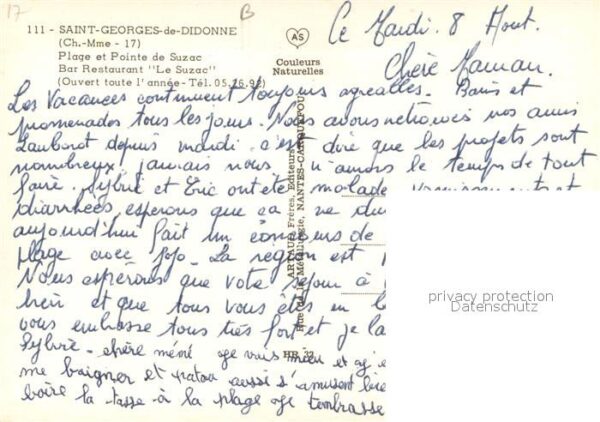 17
B
111 - SAINT-GEORGES-de-DIDONNE
(Ch.-Mme - 17)
Plage et Pointe de Suzac
Bar Restaurant "Le Suzac"
(Ouvert toute l'année - Tél. 05.26.92)
AS
Couleurs
Naturelles
ARTAUD Frères, Editeurs
Rue de la Métallurgie, NANTES-CARQUEFOU
HR 33
Ce Mardi 8 Aout.
Chère Maman.
Les vacances continuent toujours agréables. Bains et
promenades tous les jours. Nous avons retrouvés nos amis
depuis mardi c'est dire que les projets sont
nombreux jamais nous n'aurons le temps de tout
faire. Sylvie et Eric ont été malade vomissements et
diarrhées esperons que ca ne du
aujourd'hui fait un concours de
plage avec Jojo. La région est
Nous esperons que votre sejour à
bien et que tous vous êtes en
vous embrasse tous très fort et je la
Sylvie - chère mémé je vais mieu et
me baigner et aussi s'amusent bie
boire la tasse à la plage je t'embrasse
privacy protection
Datenschutz